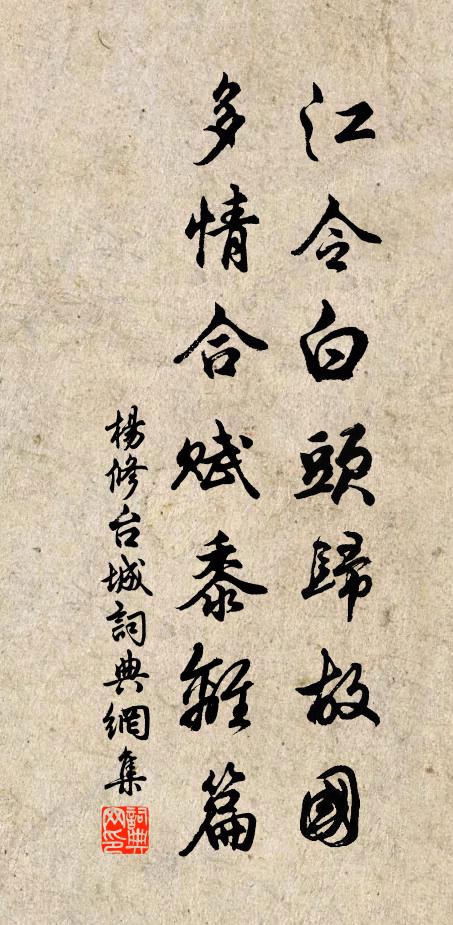 江令白頭歸故國
多情合賦黍離篇
楊修台城詞典網集
詞典网印